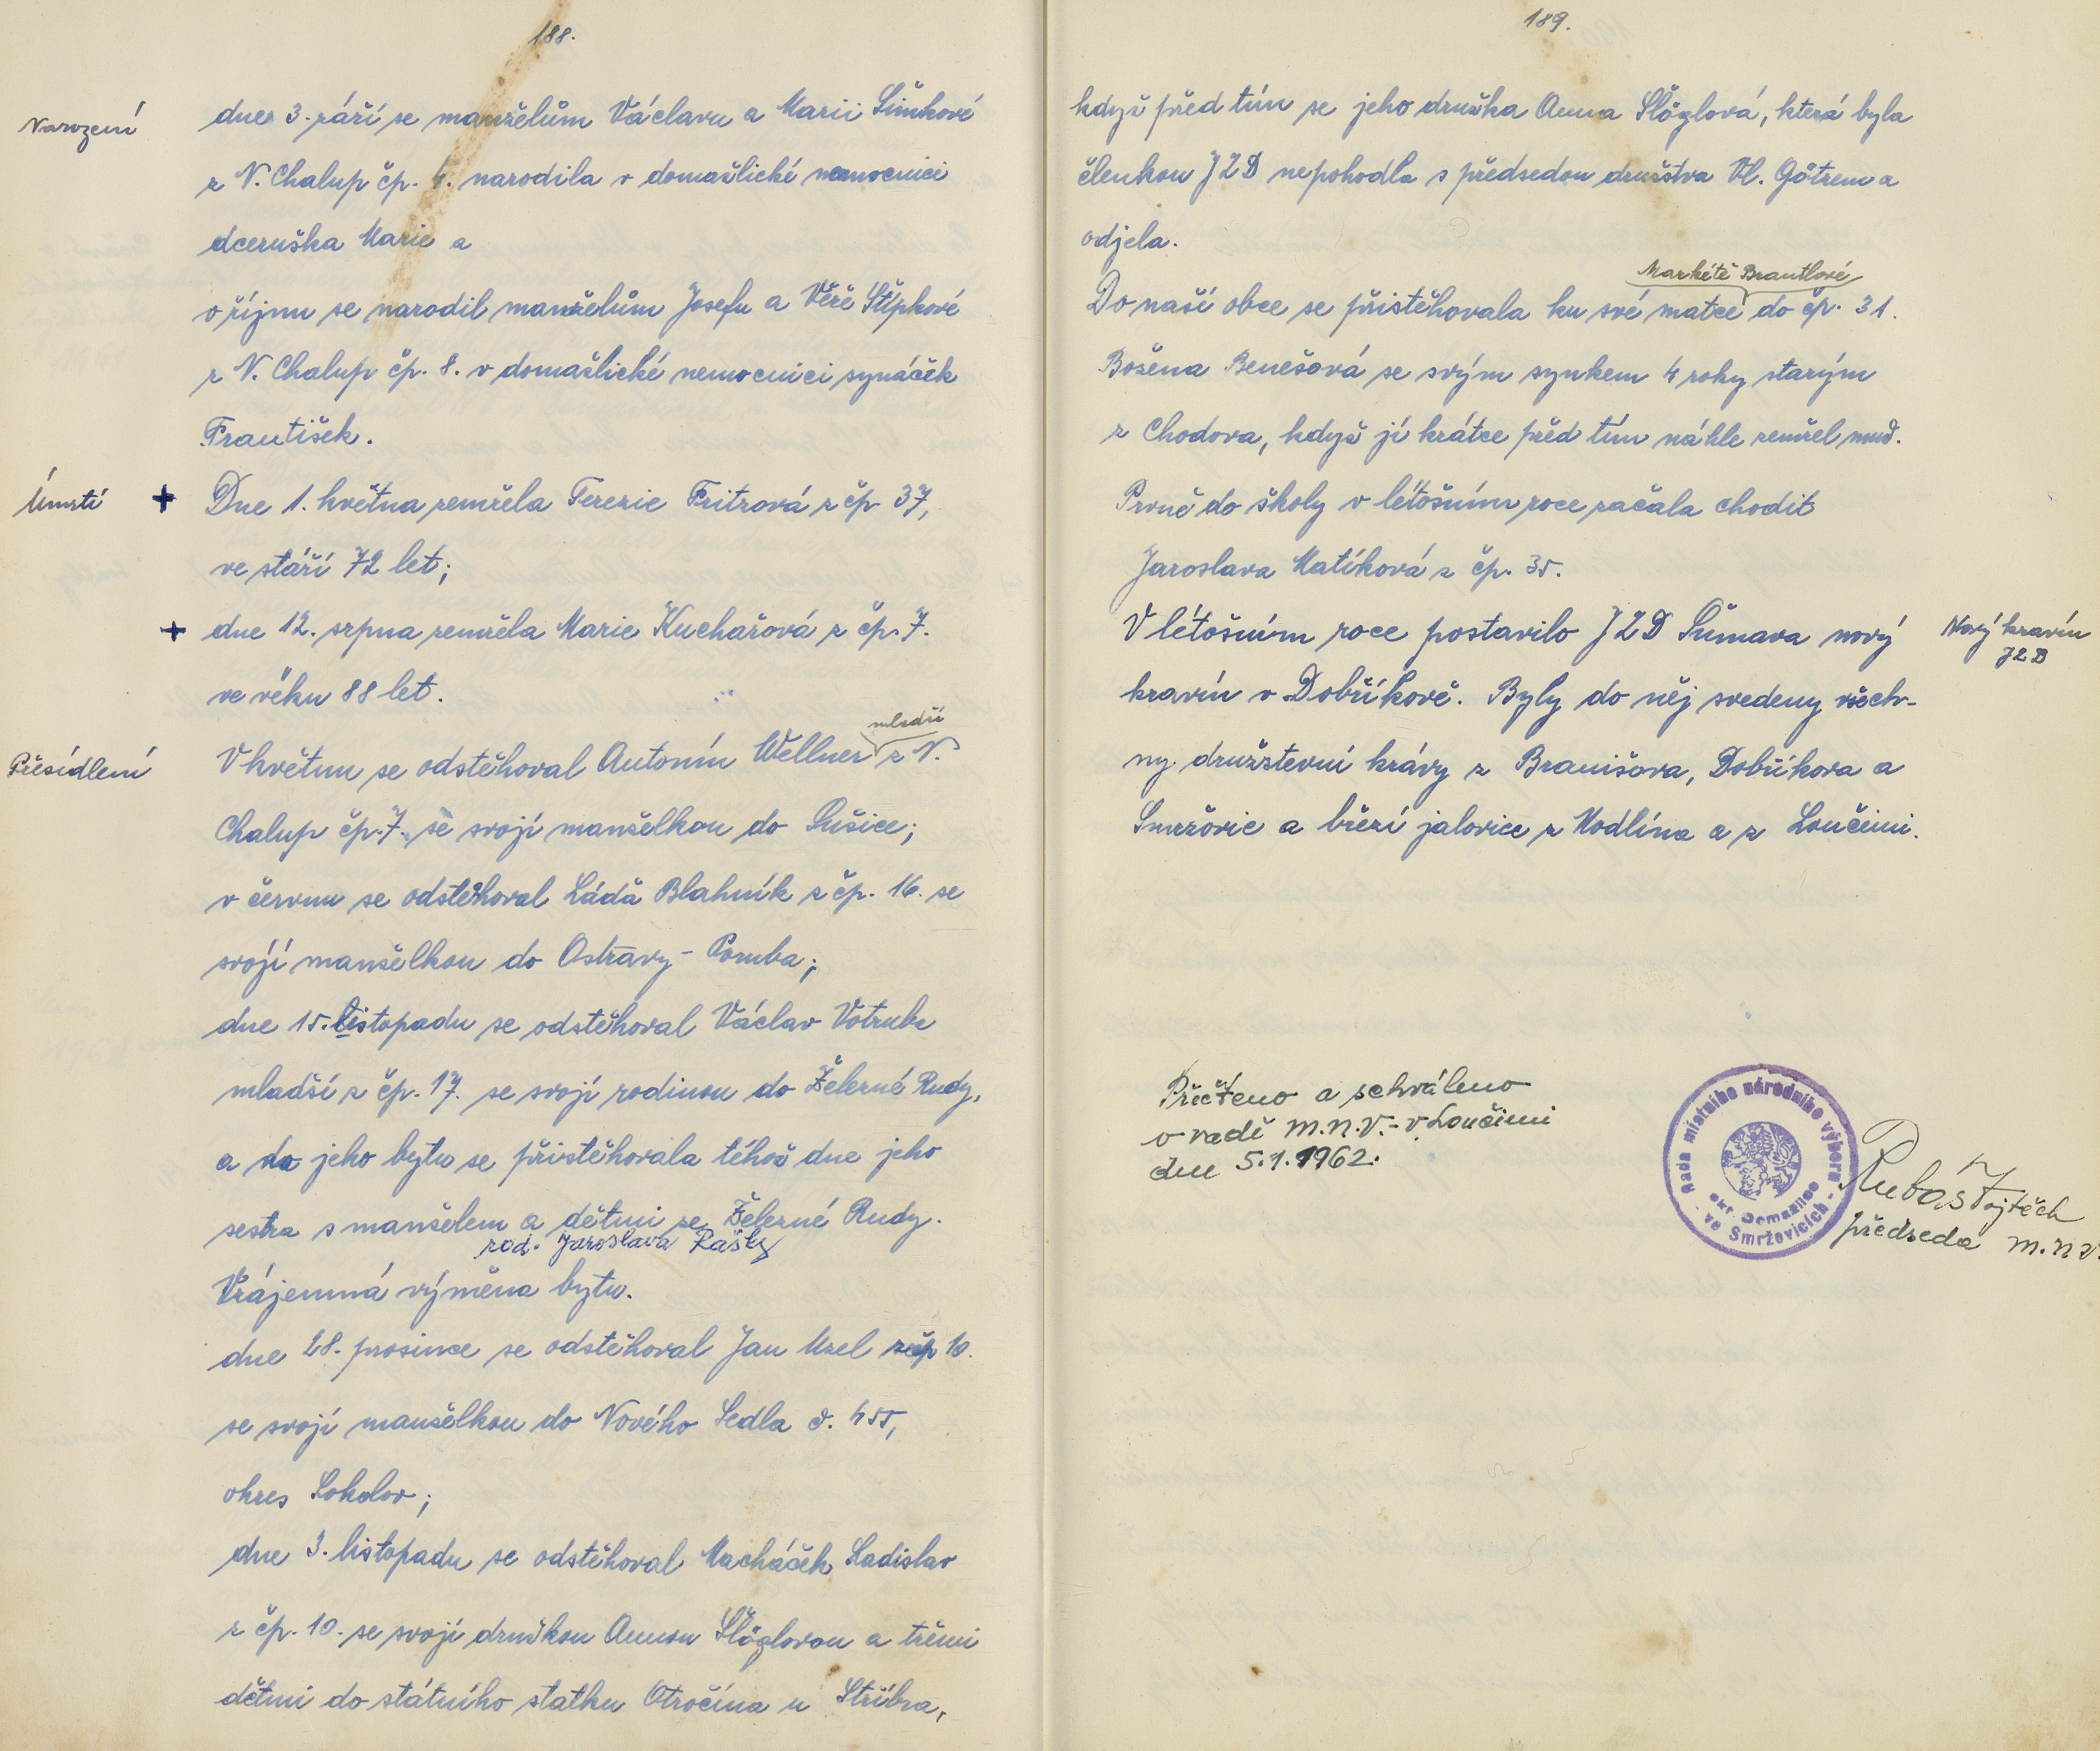 188.
Narození
dne 3. září se manželům Václavu a Marii Šimkové
z N. Chalup čp. 4. narodila v domažlické nemocnici
dceruška Marie a
v říjnu se narodil manželům Josefu a Věře Štípkové
z N. Chalup čp. 8. v domažlické nemocnici synáček
František.
Úmrtí + Dne 1. května zemřela Terezie Fritzová z čp 37,
ve stáří 72 let;
+ dne 12. srpna zemřela Marie Kuchařová z čp. 7.
ve věku 88 let.
mladší
Přesídlení V květnu se odstěhoval Antonín Wellner z N.
Chalup čp. 7. se svojí manželkou do Sušice;
v červnu se odstěhoval Láďa Blahník z čp. 16. se
svojí manželkou do Ostravy - Poruba;
dne 15. listopadu se odstěhoval Václav Votruba
mladší z čp. 17. se svojí rodinou do Železné Rudy,
a do jeho bytu se přistěhovala téhož dne jeho
sestra s manželem a dětmi ze Železné Rudy.
rod. Jaroslava Rašky
Vzájemná výměna bytu.
dne 28. prosince se odstěhoval Jan Uzel z čp 10.
se svojí manželkou do Nového Sedla č. 455,
okres Sokolov;
dne 3. listopadu se odstěhoval Macháček Ladislav
z čp. 10. se svojí družkou Annou Šlöglovou a třemi
dětmi do státního statku Otročína u Stříbra,
189.
když před tím se jeho družka Anna Šlöglová, která byla
členkou JZD nepohodla s předsedou družstva Vl. Götzem a
odjela.
Markétě Brantlové
Do naší obce se přistěhovala ku své matce do čp. 31.
Božena Benešová se svým synkem 4 roky starým
z Chodova, když jí krátce před tím náhle zemřel muž.
Prvně do školy v létošním roce začala chodit
Jaroslava Matíková z čp. 35.
V létošním roce postavilo JZD Šumava nový
Nový kravín
JZD
kravín v Dobříkově. Byly do něj svedeny všech-
ny družstevní krávy z Branišova, Dobříkova a
Smržovic a březí jalovice z Hodlína a z Loučimi.
Přečteno a schváleno
v radě M.N.V. - v Loučimi
dne 5.1.1962.
Rada místního národního výboru
ve Smržovicích
okr. Domažlice
Rubáš Vojtěch
předseda M.N.V.